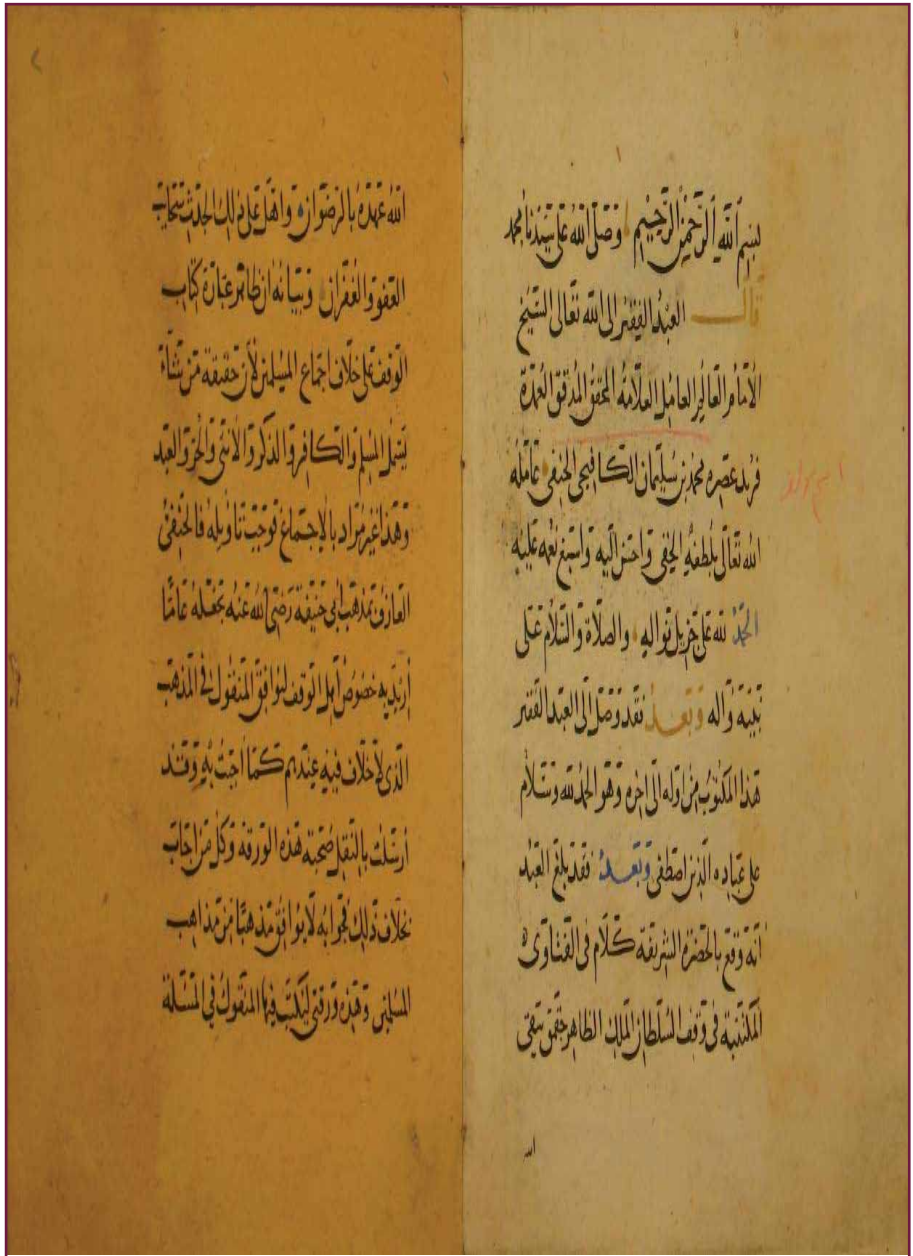 بسم الله الرحمن الرحيم وصلى الله على سيدنا محمد
قال العبد الفقير الى الله تعالى الشيخ
الامام العالم العامل العلامة المحقق المدقق العمدة
فريد عصره محمد بن سليمان الكافيجي الحنفي عامله
الله تعالى بلطفه الخفي واحسن اليه واسبغ نعمه عليه
الحمد لله على جزيل نواله والصلاة والسلام على
نبيه وآله وبعد فقد وصل الى العبد الفقير
هذا المكتوب من اوله الى اخره وهو الحمد لله وسلام
على عباده الذين اصطفى وبعد فقد بلغ العبد
انه وقع بالحضرة الشريفة كلام في الفتاوى
المكتتبة في وقف السلطان الملك الظاهر جقمق سقى
الله
الله عهده بالرضوان واهل على ذلك الجدث سحاب
العفو والغفران وبيانه ان ظاهر عبارة كتاب
الوقف على خلاف اجماع المسلمين لأن حقيقة من شاء
يشمل المسلم والكافر والذكر والانثى والحر والعبد
وهذا غير مراد بالاجماع فوجب تاويله فالحنفي
العارف بمذهب ابي حنيفة رضي الله عنه يجعله عاما
أريد به خصوص أهل الوقف ليوافق المنقول في المذهب
الذي لا خلاف فيه عندهم كما اجبت به وقد
أرسلت بالنقل صحبة هذه الورقة وكل من اجاب
بخلاف ذلك فجوابه لا يوافق مذهبا من مذاهب
المسلمين وهذه ورقتي ليكتب فيها المنقول في المسئلة